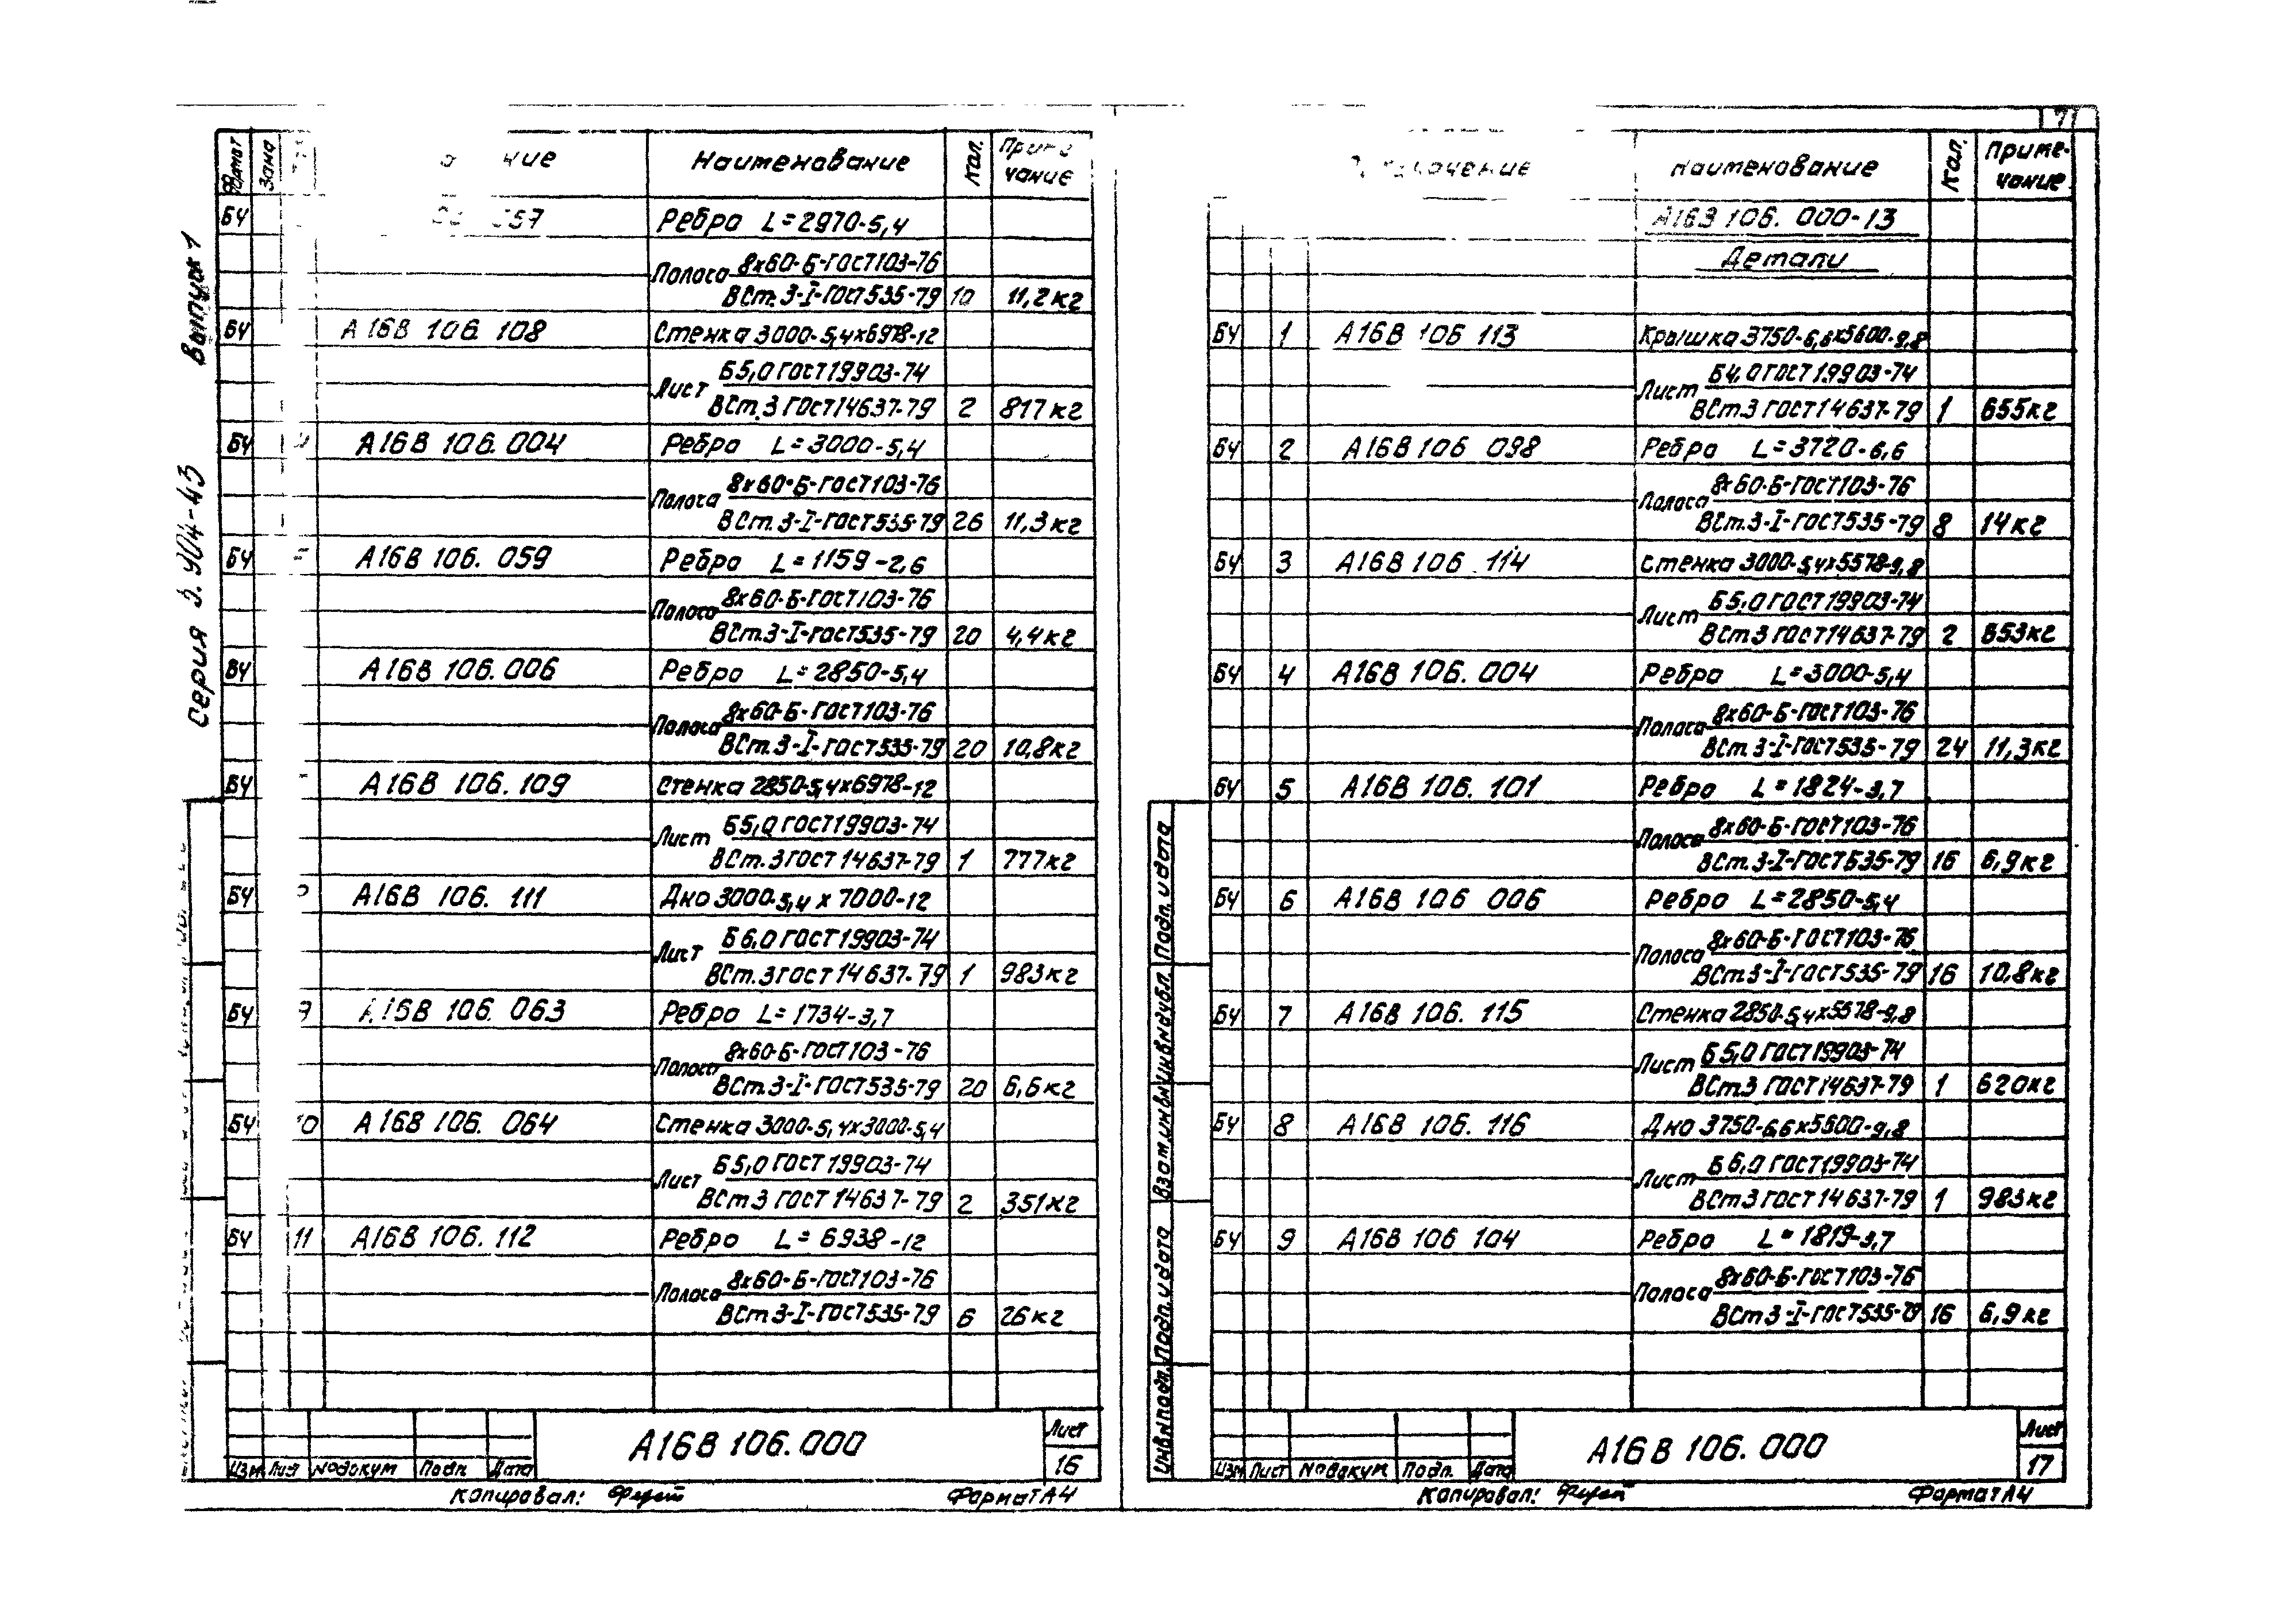 7
Серия 5.904-43 Выпуск 1
Формат Зона Наименование Кол. Приме-
чание
БЧ Ребро L=2970-5,4
Полоса 8х60-Б-ГОСТ103-76
ВСт.3-I-ГОСТ535-79 10 11,2кг
БЧ А16В 106.108 Стенка 3000-5,4х6978-12
Лист Б5,0 ГОСТ19903-74
ВСт.3 ГОСТ14637-79 2 817кг
БЧ 4 А16В 106.004 Ребро L=3000-5,4
Полоса 8х60-Б-ГОСТ103-76
ВСт.3-I-ГОСТ535-79 26 11,3кг
БЧ А16В 106.059 Ребро L=1159-2,6
Полоса 8х60-Б-ГОСТ103-76
ВСт.3-I-ГОСТ535-79 20 4,4кг
БЧ А16В 106.006 Ребро L=2850-5,4
Полоса 8х60-Б-ГОСТ103-76
ВСт.3-I-ГОСТ535-79 20 10,8кг
БЧ А16В 106.109 Стенка 2850-5,4х6978-12
Лист Б5,0 ГОСТ19903-74
ВСт.3 ГОСТ 14637-79 1 777кг
БЧ А16В 106.111 Дно 3000-5,4 х 7000-12
Лист Б 6,0 ГОСТ19903-74
ВСт.3 ГОСТ 14637-79 1 983кг
БЧ 9 А16В 106.063 Ребро L=1734-3,7
Полоса 8х60-Б-ГОСТ103-76
ВСт.3-I-ГОСТ535-79 20 6,6кг
БЧ 10 А16В 106.064 Стенка 3000-5,4х3000-5,4
Лист Б5,0 ГОСТ 19903-74
ВСт3 ГОСТ 14637-79 2 351кг
БЧ 11 А16В 106.112 Ребро L=6938-12
Полоса 8х60-Б-ГОСТ103-76
ВСт3-I-ГОСТ535-79 6 26кг
А16В 106.000
Лист
16
Изм Лист №докум Подп. Дата
Копировал: Формат А4
Обозначение Наименование Кол. Приме-
чание
А16В 106.000-13
Детали
БЧ 1 А16В 106 113 Крышка 3750-6,6х5600-9,8
Лист Б4,0 ГОСТ19903-74
ВСт.3 ГОСТ14637-79 1 655кг
БЧ 2 А16В 106 098 Ребро L=3720-6,6
Полоса 8х60-Б-ГОСТ103-76
ВСт.3-I-ГОСТ535-79 8 14кг
БЧ 3 А16В 106.114 Стенка 3000-5,4х5578-9,8
Лист Б5,0 ГОСТ19903-74
ВСт3 ГОСТ14637-79 2 653кг
БЧ 4 А16В 106.004 Ребро L=3000-5,4
Полоса 8х60-Б-ГОСТ103-76
ВСт.3-I-ГОСТ535-79 24 11,3кг
БЧ 5 А16В 106.101 Ребро L=1824-3,7
Полоса 8х60-Б-ГОСТ103-76
ВСт.3-I-ГОСТ535-79 16 6,9кг
БЧ 6 А16В 106 006 Ребро L=2850-5,4
Полоса 8х60-Б-ГОСТ103-76
ВСт.3-I-ГОСТ535-79 16 10,8кг
БЧ 7 А16В 106.115 Стенка 2850-5,4х5578-9,8
Лист Б 5,0 ГОСТ19903-74
ВСт.3 ГОСТ14637-79 1 620кг
БЧ 8 А16В 106.116 Дно 3750-6,6х5600-9,8
Лист Б 6,0 ГОСТ19903-74
ВСт3 ГОСТ14637-79 1 983кг
БЧ 9 А16В 106 104 Ребро L=1819-3,7
Полоса 8х60-Б-ГОСТ103-76
ВСт3-I-ГОСТ535-79 16 6,9кг
Инв№подл. Подп. и дата Взам.инв№ Инв№дубл. Подп. и дата
А16В 106.000
Лист
17
Изм Лист №докум Подп. Дата
Копировал: Формат А4